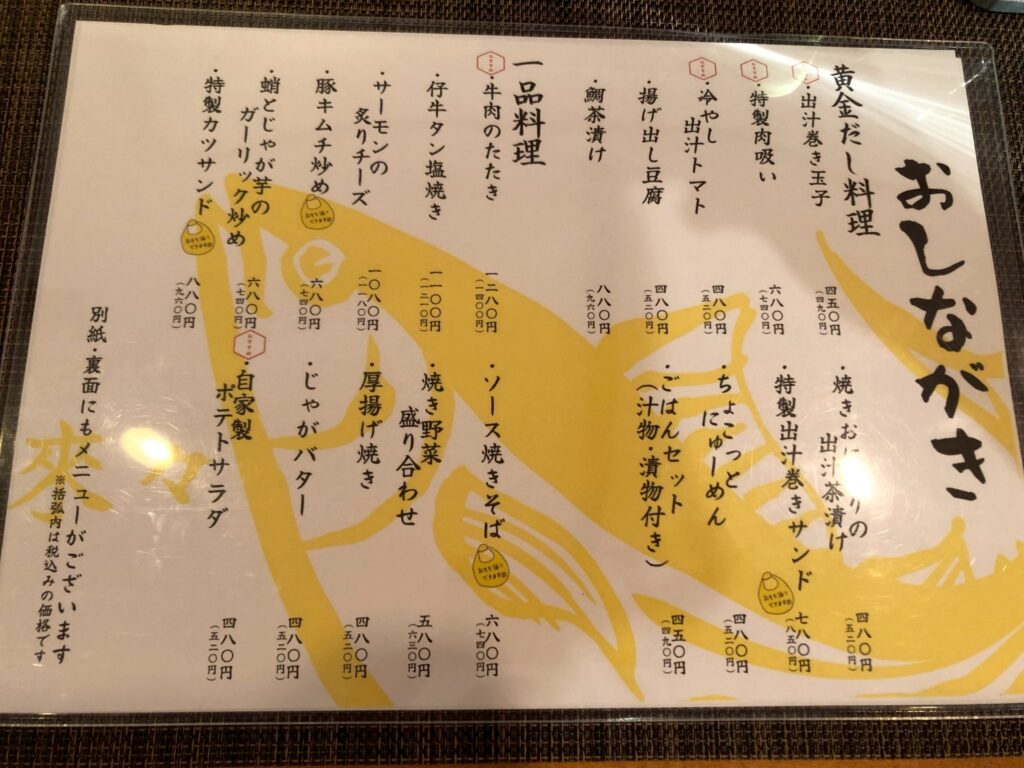 おしながき
黄金だし料理
おすすめ
・出汁巻き玉子
四五〇円
(四九〇円)
おすすめ
・特製肉吸い
六八〇円
(七四〇円)
おすすめ
・冷やし
出汁トマト
四八〇円
(五二〇円)
・揚げ出し豆腐
四八〇円
(五二〇円)
・鯛茶漬け
八八〇円
(九六〇円)
・焼きおにぎりの
出汁茶漬け
四八〇円
(五二〇円)
・特製出汁巻きサンド
おもち帰り
できます
七八〇円
(八五〇円)
・ちょこっと
にゅーめん
四八〇円
(五二〇円)
・ごはんセット
(汁物・漬物付き)
四五〇円
(四九〇円)
一品料理
おすすめ
・牛肉のたたき
一二八〇円
(一四〇〇円)
・仔牛タン塩焼き
一一〇〇円
(一二一〇円)
・サーモンの
炙りチーズ
一〇八〇円
(一一八〇円)
・豚キムチ炒め
おもち帰り
できます
六八〇円
(七四〇円)
・蛸とじゃが芋の
ガーリック炒め
六八〇円
(七四〇円)
・特製カツサンド
おもち帰り
できます
八八〇円
(九六〇円)
・ソース焼きそば
おもち帰り
できます
六八〇円
(七四〇円)
・焼き野菜
盛り合わせ
五八〇円
(六三〇円)
・厚揚げ焼き
四八〇円
(五二〇円)
・じゃがバター
四八〇円
(五二〇円)
おすすめ
・自家製
ポテトサラダ
四八〇円
(五二〇円)
別紙・裏面にもメニューがございます
※括弧内は税込みの価格です